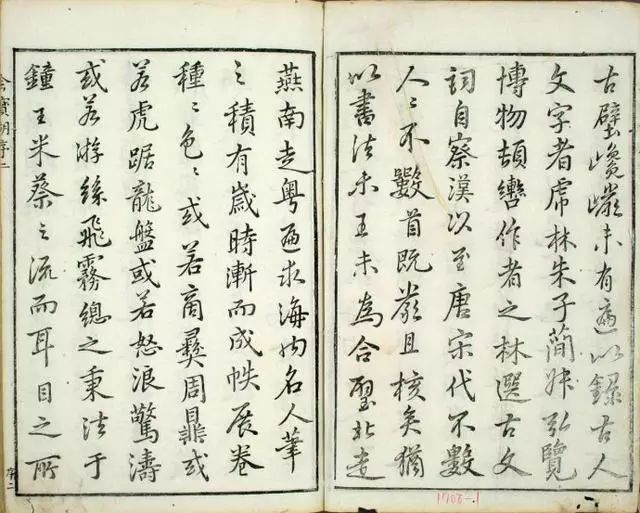 古壁巉巖未有遍以錄古人
文字者虎林朱子簡叔弘覽
博物頓轡作者之林選古文
詞自秦漢以至唐宋代不數
人〻不數首既嚴且核矣猶
以書法未工未為合璧北走
燕南走粵遍求海內名人筆
之積有歲時漸而成帙展卷
種〻色〻或若商彝周鼎或
若虎踞龍盤或若怒浪驚濤
或若游絲飛霧總之秉法于
鐘王米蔡之流而耳目之所
序二